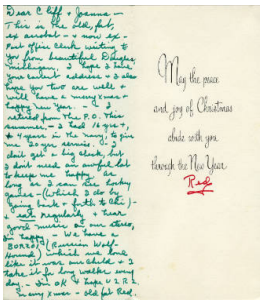 Dear Cliff & Joanna -
This is the old, fat,
ex acrobat - & now ex
Post Office Clerk writing to
you from beautiful
Michigan. I hope I have
your
you two are well &
will have a merry xmas &
happy New Year. - I
retired from the P.O. This
summer - I had 16 yrs +,
& 4 years in the navy, to give
me 20 yrs service. I
don't get a big check, but
I don't need an awful lot
to keep me happy. As
long as I can
(which I do by
going back & forth to this) -
& eat regularly & hear
good music on our stereo,
I'm happy - We have a
BORZOI (Russian Wolf-
Hound) which we love
like it was our child & I
take it for long walks every
day. - I'm OK & hope U 2 R 2.
Merry Xmas - old fat Red.
May the peace
and joy of Christmas
abide with you
through the New Year
Red